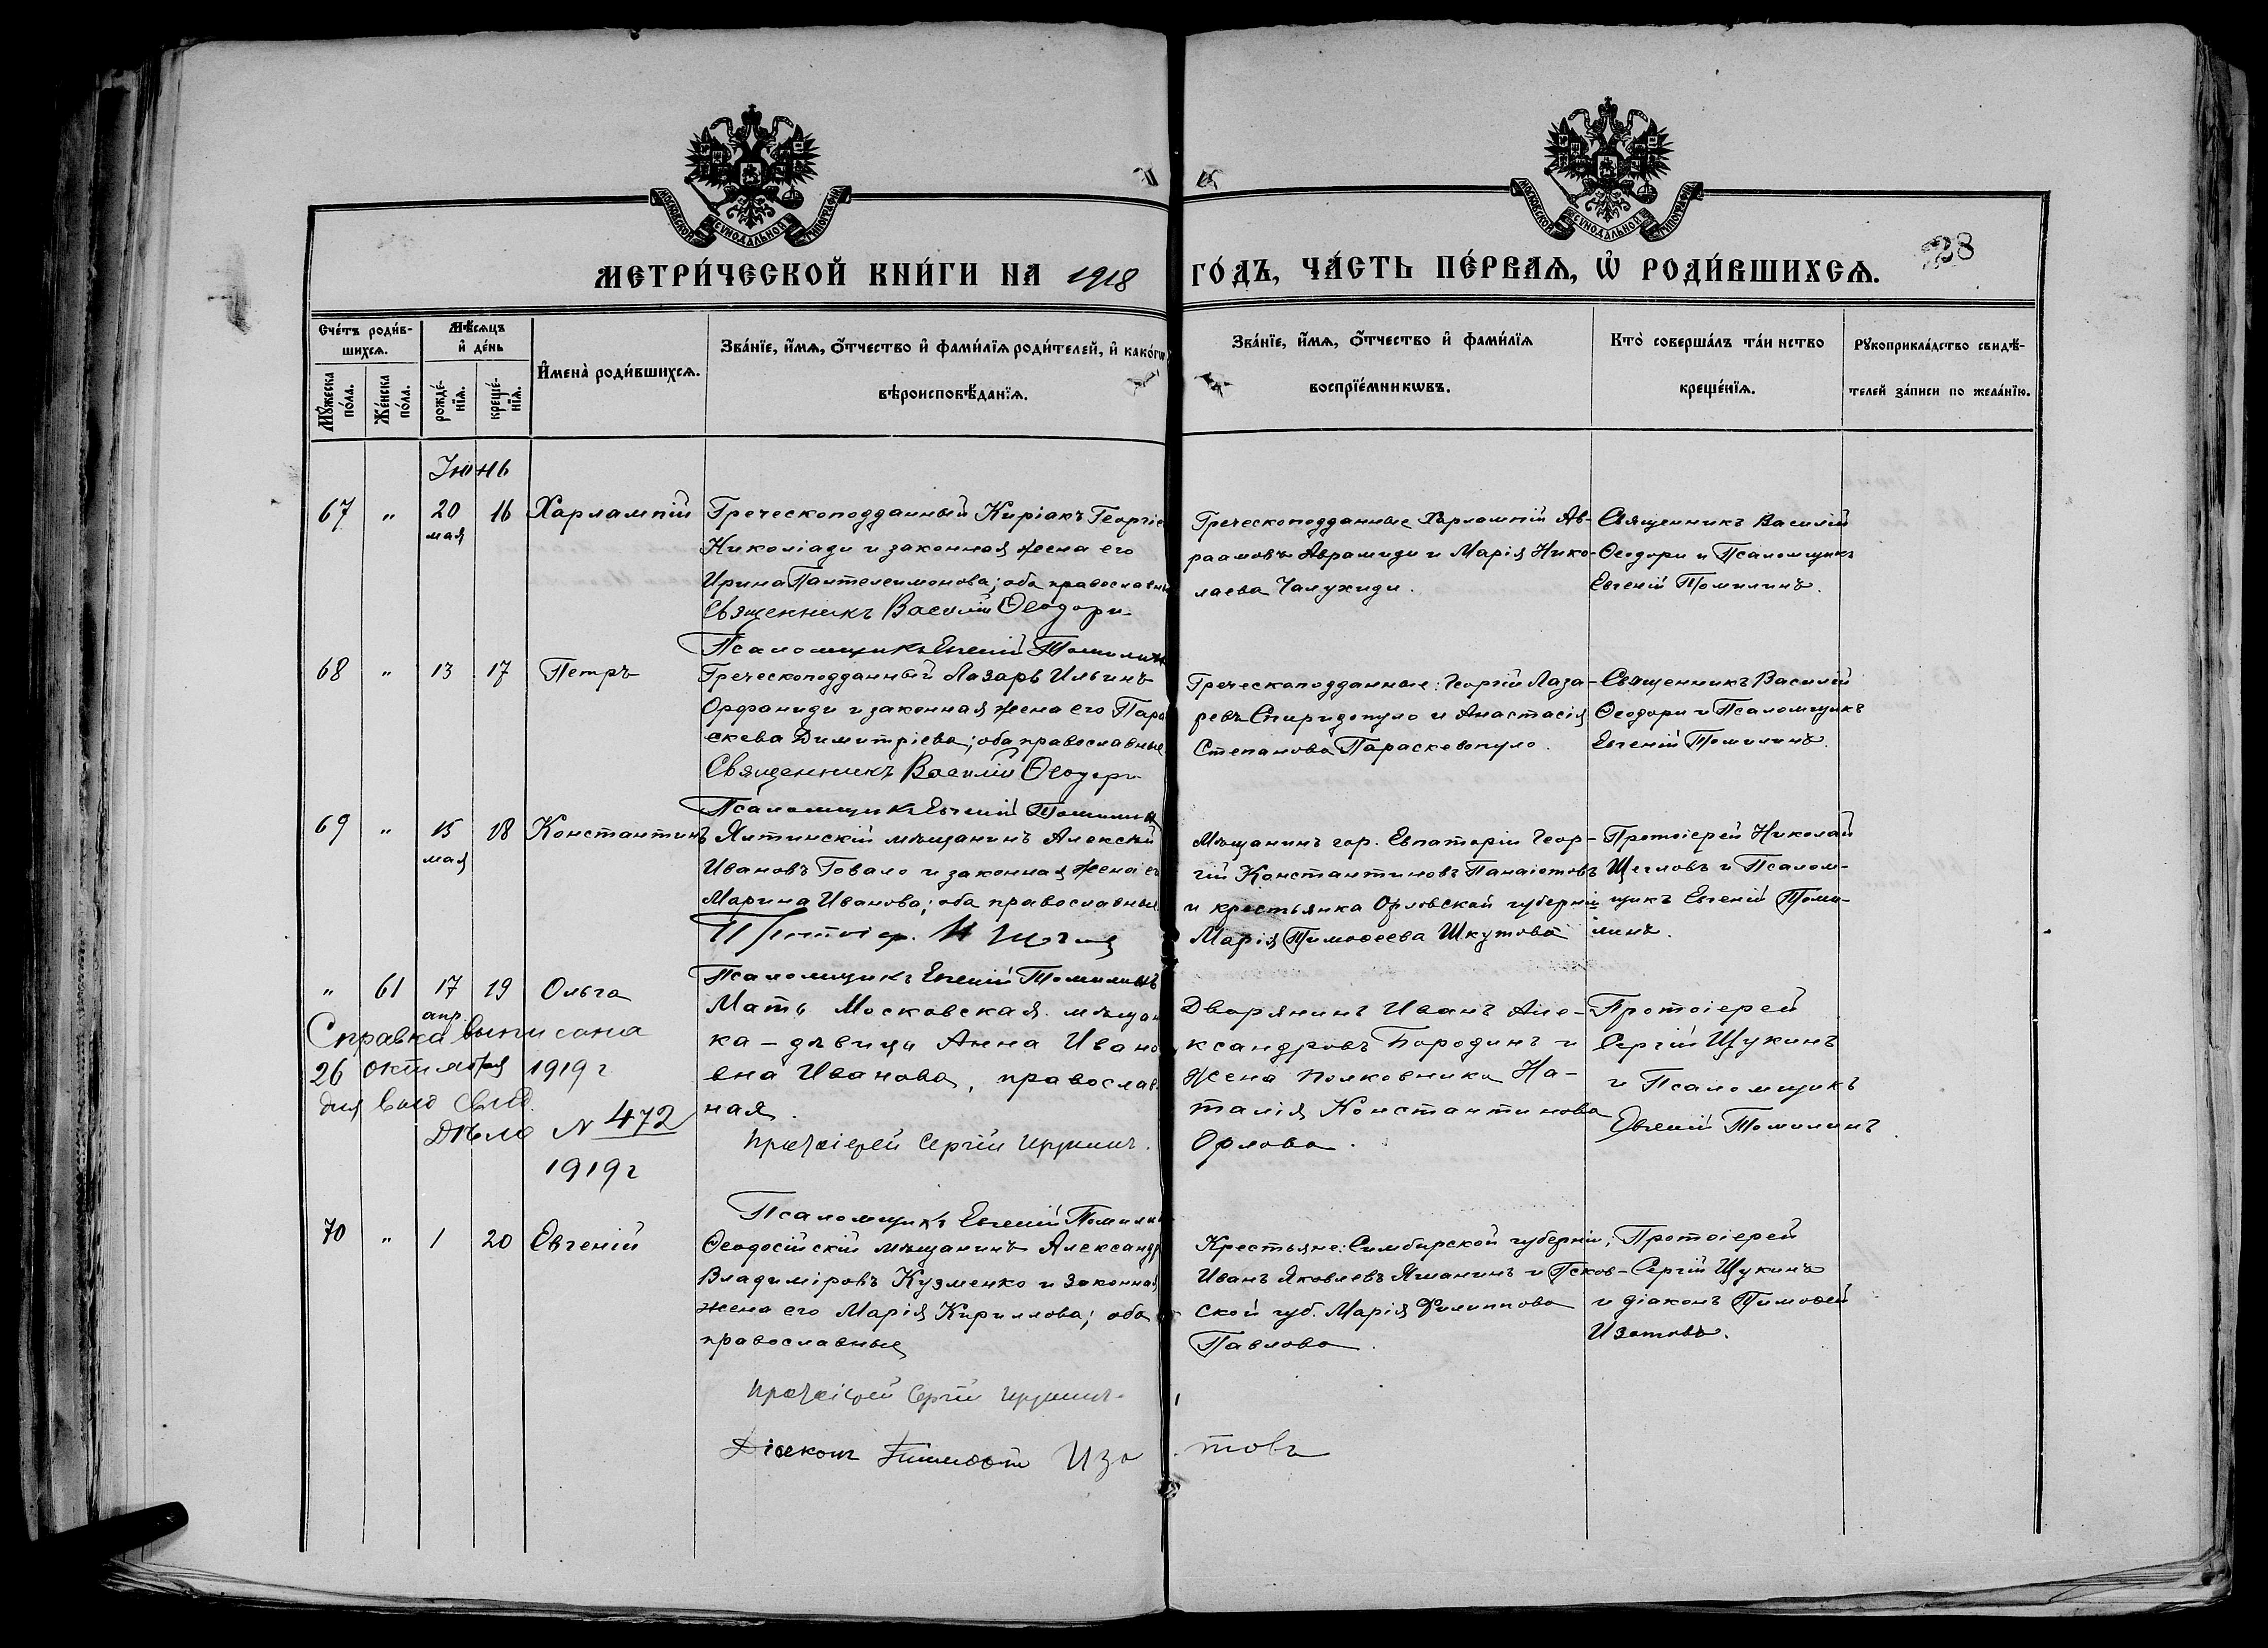 МОСКОВСКОЙ СУНОДАЛЬНОЙ ТИПОГРАФІИ
МОСКОВСКОЙ СУНОДАЛЬНОЙ ТИПОГРАФІИ
МЕТРИ́ЧЕСКОЙ КНИ́ГИ НА 1918 ГО́ДЪ, ЧА́СТЬ ПЕ́РВАѦ, Ѡ҆ РОДИ́ВШИХСѦ.
Сче́тъ роди́в-
шихсѧ.
Мꙋ́жеска по́ла.
Же́нска по́ла.
Мѣ́сѧцъ
и҆ де́нь
рожде́-
нїѧ.
креще́-
нїѧ.
И҆мена̀ роди́вшихсѧ.
Зва́нїе, и҆́мѧ, ѻ҆́тчество и҆ фами́лїѧ роди́телей, и҆ како́гѡ
вѣроисповѣ́данїѧ.
Зва́нїе, и҆́мѧ, ѻ҆́тчество и҆ фами́лїѧ
воспрїе́мникѡвъ.
Кто̀ соверша́лъ та́инство
креще́нїѧ.
Рꙋкоприкла́дство свидѣ́-
телей за́писи по жела́нїю.
Іюнь
67 " 20 16 Харлампій
мая
Греческоподданный Киріакъ Георгіе
Николіади и законная жена его
Ирина Пантелеимонова; оба православны
Священникъ Василій Ѳеодори
Псаломщикъ Евгеній Томилинъ
Греческоподданные Харлампій Ав-
раамовъ Аврамиди и Марія Нико-
лаева Чалухиди.
Священникъ Василій
Ѳеодори и Псаломщикъ
Евгеній Томилинъ.
68 " 13 17 Петръ
Греческоподданный Лазарь Ильинъ
Орфаниди и законная жена его Пара
скева Димитріева; оба православные
Священникъ Василій Ѳеодори
Псаломщикъ Евгеній Томилинъ
Греческоподданные: Георгій Лаза-
ревъ Спиридопуло и Анастасія
Степанова Параскевопуло.
Священникъ Василій
Ѳеодори и Псаломщикъ
Евгеній Томилинъ.
69 " 15 18 Константинъ
мая
Ялтинскій мѣщанинъ Алексѣй
Ивановъ Говало и законная жена ег
Марина Иванова; оба православные
Протоіер. Н
Псаломщикъ Евгеній Томилинъ
Мѣщанинъ гор. Евпаторіи Геор-
гій Константиновъ Панаіотовъ
и крестьянка Орловской губерніи
Марія Тимоѳеева Шкутова
Протоіерей Николай
Щегловъ и Псалом-
щикъ Евгеній Томи-
линъ.
" 61 17 19 Ольга
апр.
Справка выписана
26 октября 1919 г
Дѣло № 472
1919 г
Мать Московская мѣщан
ка - дѣвица Анна Ивано
вна Иванова, православ
ная.
Протоіерей Сергій Щукинъ.
Псаломщикъ Евгеній Томилин
Дворянинъ Иванъ Але-
ксандровъ Бородинъ и
жена полковника На-
талія Константинова
Орлова.
Протоіерей
Сергій Щукинъ
и Псаломщикъ
Евгеній Томилинъ.
70 " 1 20 Евгеній
Ѳеодосійскій мѣщанинъ Александр
Владиміровъ Кузменко и законная
жена его Марія Кириллова; оба
православные
Протоіерей Сергій Щукинъ.
Діаконъ Тимоѳей Изотовъ
Крестьяне: Симбирской губерніи;
Иванъ Яковлевъ Яшанинъ и Псков-
ской губ. Марія Филиппова
Павлова.
Протоіерей
Сергій Щукинъ
и діаконъ Тимоѳей
Изотовъ.